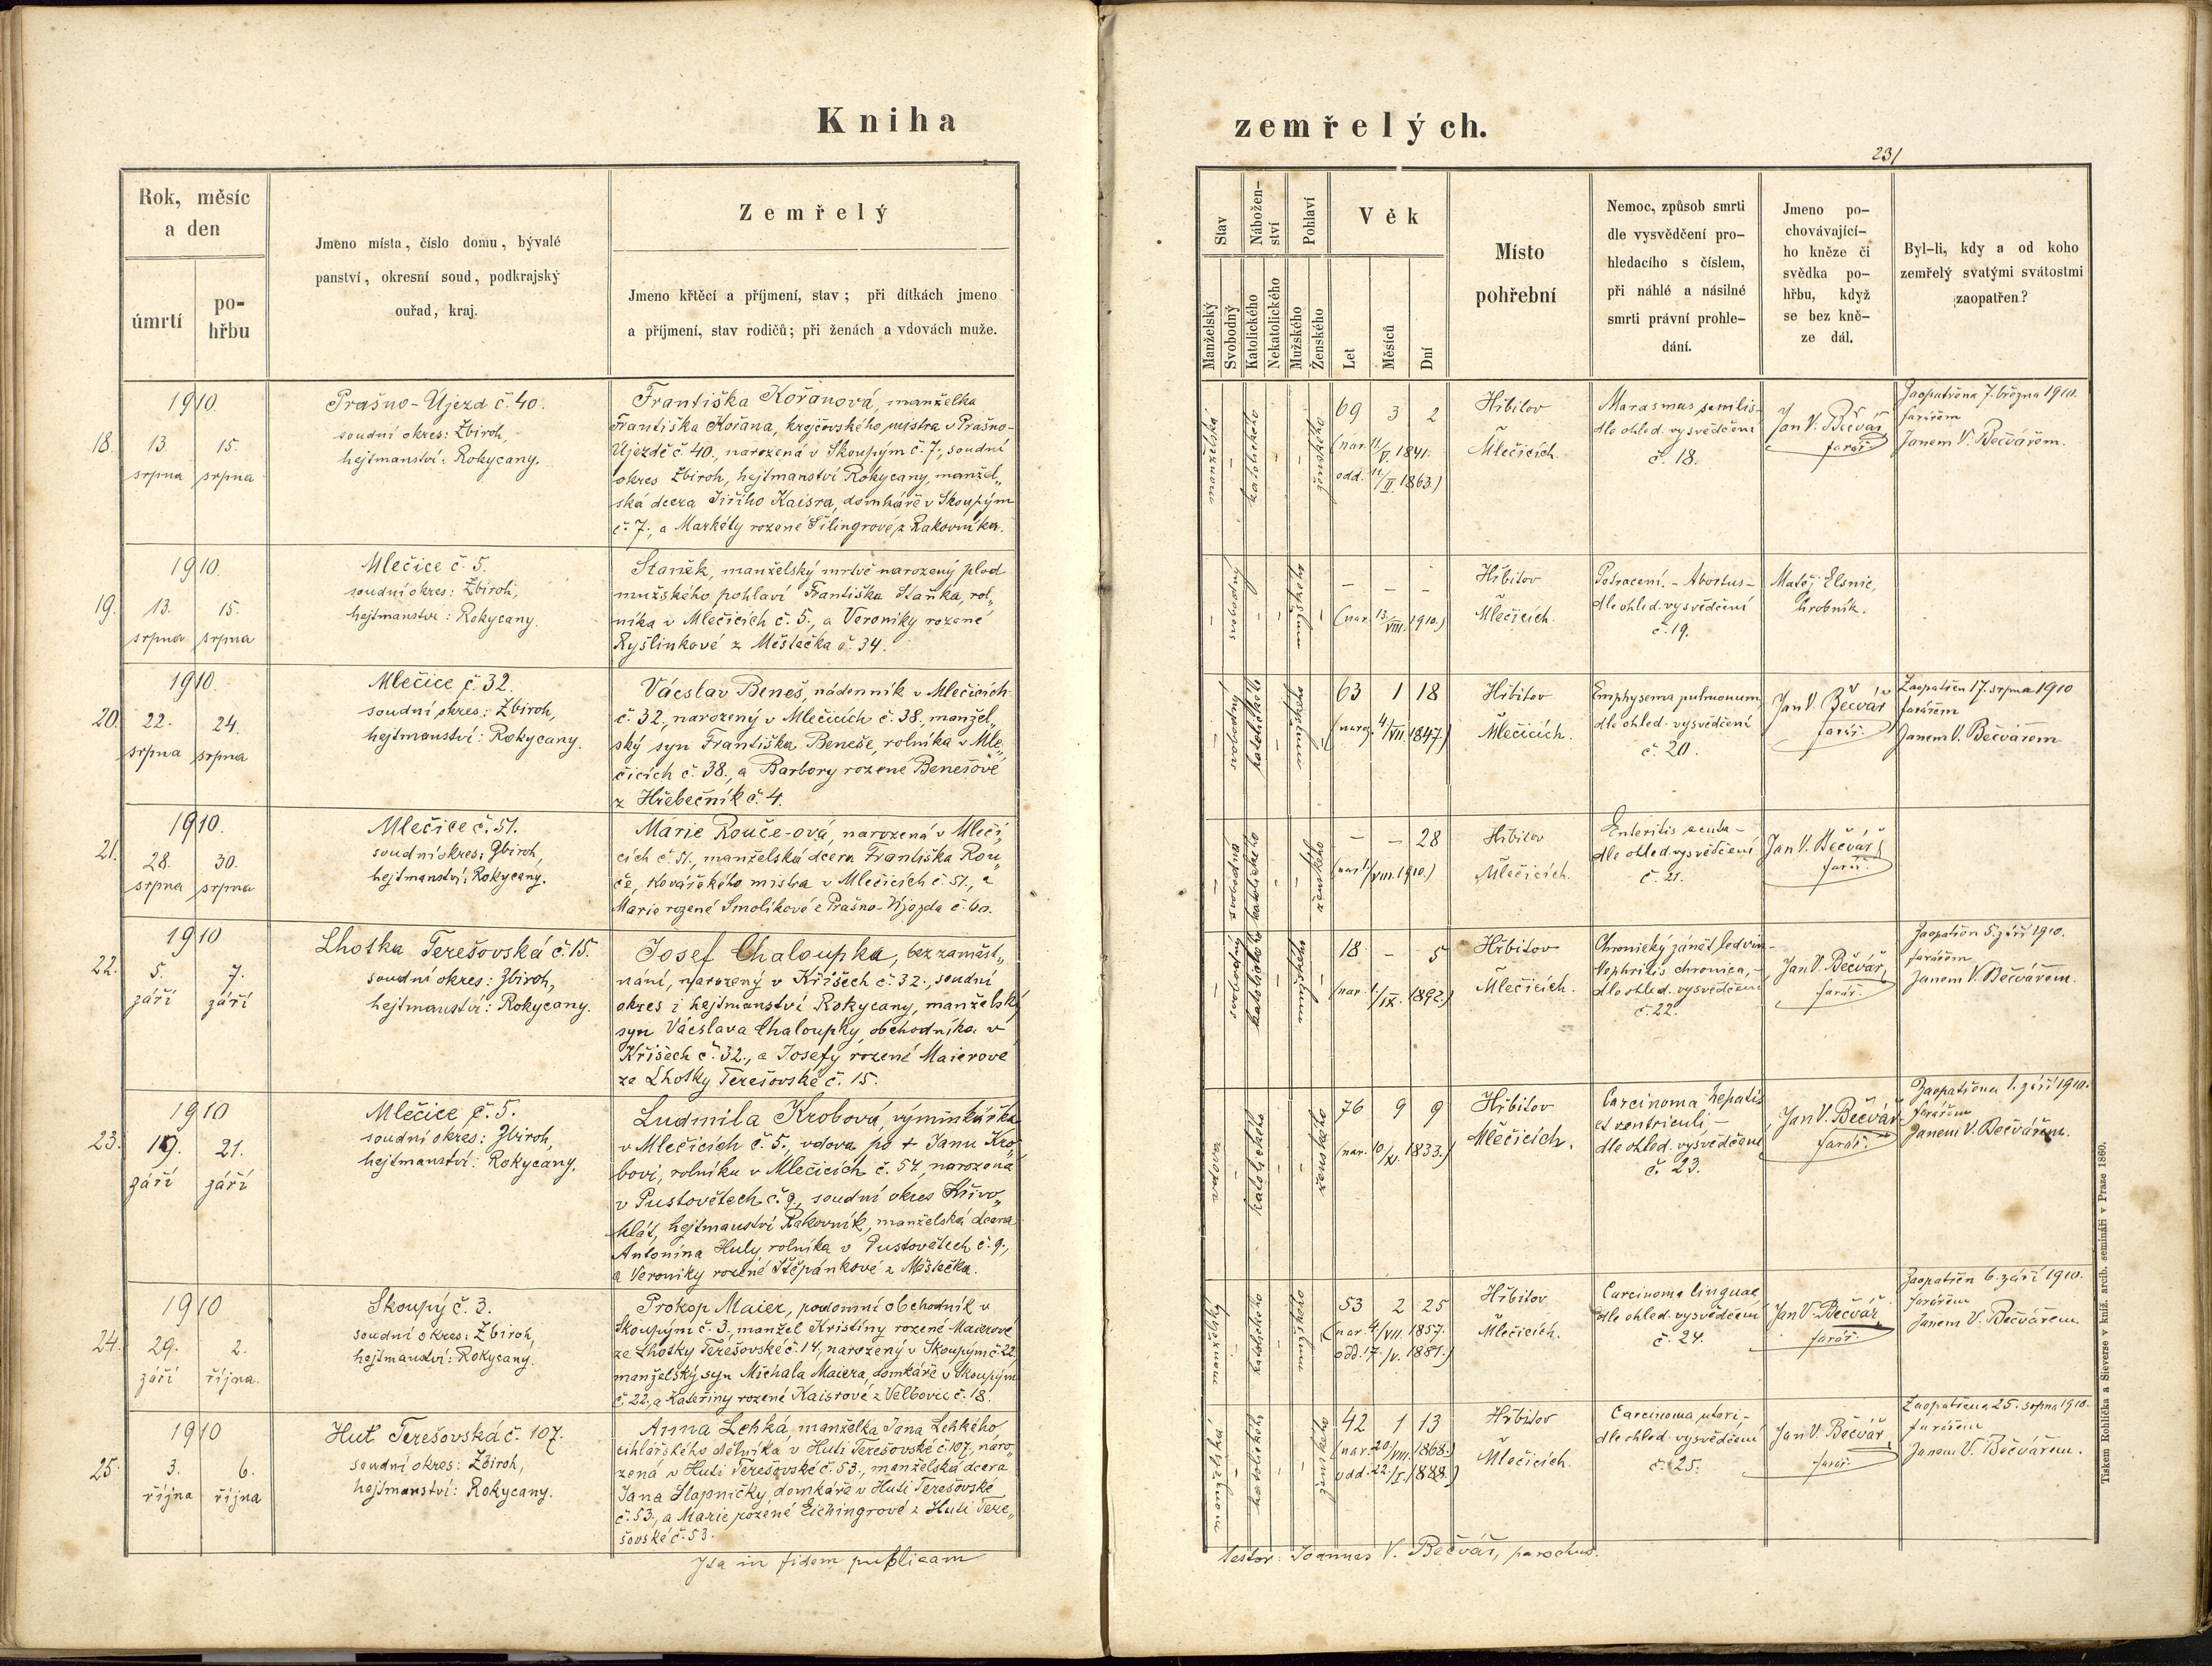 Kniha
Rok, měsíc
a den
úmrtí
po-
hřbu
Jmeno místa, číslo domu, bývalé
panství, okresní soud, podkrajský
ouřad, kraj.
Zemřelý
Jmeno křtěcí a příjmení, stav; při dítkách jmeno
a příjmení, stav rodičů; při ženách a vdovách muže.
18.
1910.
13. 15.
srpna srpna
Prašno-Újezd č. 40.
soudní okres: Zbiroh,
hejtmanství: Rokycany.
Františka Kořanová, manželka
Františka Kořana, krejčovského mistra v Prašno-
Újezdě č. 40., narozená v Skoupým č. 7., soudní
okres Zbiroh, hejtmanství Rokycany, manžel„
ská dcera Jiřího Kaisra, domkáře v Skoupým
č. 7., a Markéty rozené Šilingrové z Rakovníka.
19.
1910.
13. 15.
srpna srpna
Mlečice č. 5.
soudní okres: Zbiroh,
hejtmanství: Rokycany.
Staněk, manželský mrtvě narozený plod
mužského pohlaví Františka Staňka, rol„
níka v Mlečicích č. 5., a Veroniky rozené
Ryšlinkové z Městečka č. 34.
20.
1910.
22. 24.
srpna srpna
Mlečice č. 32.
soudní okres: Zbiroh,
hejtmanství: Rokycany.
Václav Beneš, nádenník v Mlečicích
č. 32., narozený v Mlečicích č. 38., manžel„
ský syn Františka Beneše, rolníka v Mle„
čicích č. 38., a Barbory rozené Benešové
z Hřebečník č. 4.
21.
1910.
28. 30.
srpna srpna
Mlečice č. 51.
soudní okres: Zbiroh,
hejtmanství: Rokycany.
Marie Rouče-ová, narozená v Mleči„
cích č. 51., manželská dcera Františka Rou„
če, kovářského mistra v Mlečicích č. 51., a
Marie rozené Smolíkové z Prašno-Újezda č. 60.
22.
1910
5. 7.
září září
Lhotka Terešovská č. 15.
soudní okres: Zbiroh,
hejtmanství: Rokycany.
Josef Chaloupka, bez zaměst„
nání, narozený v Kříšech č. 32., soudní
okres i hejtmanství Rokycany, manželský
syn Václava Chaloupky, obchodníka v
Kříšech č. 32., a Josefy rozené Maierové
ze Lhotky Terešovské č. 15.
23.
1910
19. 21.
září září
Mlečice č. 5.
soudní okres: Zbiroh,
hejtmanství: Rokycany.
Ludmila Krobová, výminkářka
v Mlečicích č. 5., vdova po + Janu Kro„
bovi, rolníku v Mlečicích č. 54, narozená
v Pustovětech č. 9., soudní okres Křivo„
klát, hejtmanství Rakovník, manželská dcera
Antonína Huly, rolníka v Pustovětech č. 9.,
a Veroniky rozené Štěpánkové z Městečka.
24.
1910
29. 2.
září října.
Skoupý č. 3.
soudní okres: Zbiroh,
hejtmanství: Rokycany.
Prokop Maier, podomní obchodník v
Skoupým č. 3., manžel Kristiny rozené Maierové
ze Lhotky Terešovské č. 14, narozený v Skoupým č. 22,
manželský syn Michala Maiera, domkáře v Skoupým
č. 22., a Kateřiny rozené Kaisrové z Velbovic č. 18.
25.
1910
3. 6.
října října
Huť Terešovská č. 107.
soudní okres: Zbiroh,
hejtmanství: Rokycany.
Anna Lehká, manželka Jana Lehkého
cihlářského dělníka v Huti Terešovské č. 107, naro„
zená v Huti Terešovské č. 53., manželská dcera
Jana Slapničky, domkáře v Huti Terešovské
č. 53., a Marie rozené Eichingrové z Huti Tere„
šovské č. 53.
Ita in fidem publicam
zemřelých.
231
Stav
Nábožen-
ství
Pohlaví
Manželský
Svobodný
Katolického
Nekatolického
Mužského
Ženského
Věk
Let
Měsíců
Dní
Místo
pohřební
Nemoc, způsob smrti
dle vysvědčení pro-
hledacího s číslem,
při náhlé a násilné
smrti právní prohle-
dání.
Jmeno po-
chovávající-
ho kněze či
svědka po-
hřbu, když
se bez kně-
ze dál.
Byl-li, kdy a od koho
zemřelý svatými svátostmi
zaopatřen?
manželská – katolického – – ženského
69 3 2
(nar. 11/V. 1841.
odd. 11/II. 1863.)
Hřbitov
Mlečicích.
Marasmus senilis-
dle ohled. vysvědčení
č. 18.
Jan V. Bečvář
farář
Zaopatřena 7. března 1910.
farářem
Janem V. Bečvářem.
– svobodný – – mužského –
– – –
(nar. 13/VIII. 1910.)
Hřbitov
Mlečicích.
Potracení. – Abortus –
dle ohled. vysvědčení
č. 19.
Matěj Elsnic,
hrobník.
– svobodný katolického – mužského –
63 1 18
(naroz. 4/VII. 1847.)
Hřbitov
Mlečicích.
Emphysema pulmonum
dle ohled. vysvědčení
č. 20.
Jan V. Bečvář
farář.
Zaopatřen 17. srpna 1910
farářem
Janem V. Bečvářem
– svobodná katolického – – ženského
– – 28
(nar. 1/VIII. 1910.)
Hřbitov
Mlečicích.
Enteritis acuta –
dle ohled. vysvědčení
č. 21.
Jan V. Bečvář
farář.
– svobodný katolického – mužského –
18 – 5
(nar. 1/IX. 1892.)
Hřbitov
Mlečicích.
Chronický zánět ledvin –
Nephritis chronica, –
dle ohled. vysvědčení
č. 22.
Jan V. Bečvář,
farář.
Zaopatřen 5. září 1910.
farářem
Janem V. Bečvářem.
vdova – katolického – – ženského
76 9 9
(nar. 10/XI. 1833.)
Hřbitov
Mlečicích.
Carcinoma hepatis
et ventriculi –
dle ohled. vysvědčení
č. 23.
Jan V. Bečvář
farář.
Zaopatřena 1. září 1910.
farářem
Janem V. Bečvářem.
– katolického – mužského –
53 2 25
(nar. 4/VII. 1857.
odd. 17/V. 1881.)
Hřbitov
Mlečicích.
Carcinoma linguae
dle ohled. vysvědčení
č. 24.
Jan V. Bečvář,
farář.
Zaopatřen 6. září 1910.
farářem
Janem V. Bečvářem.
manželská – katolického – – ženského
42 1 13
(nar. 20/VIII. 1868.)
odd. 22./I. 1888.)
Hřbitov
Mlečicích.
Carcinoma uteri –
dle ohled. vysvědčení
č. 25.
Jan V. Bečvář,
farář.
Zaopatřena 25. srpna 1910.
farářem
Janem V. Bečvářem.
testor: Joannes V. Bečvář, parochus.
Tiskem Rohlíčka a Sieverse v kníž. arcib. semináři v Praze 1860.